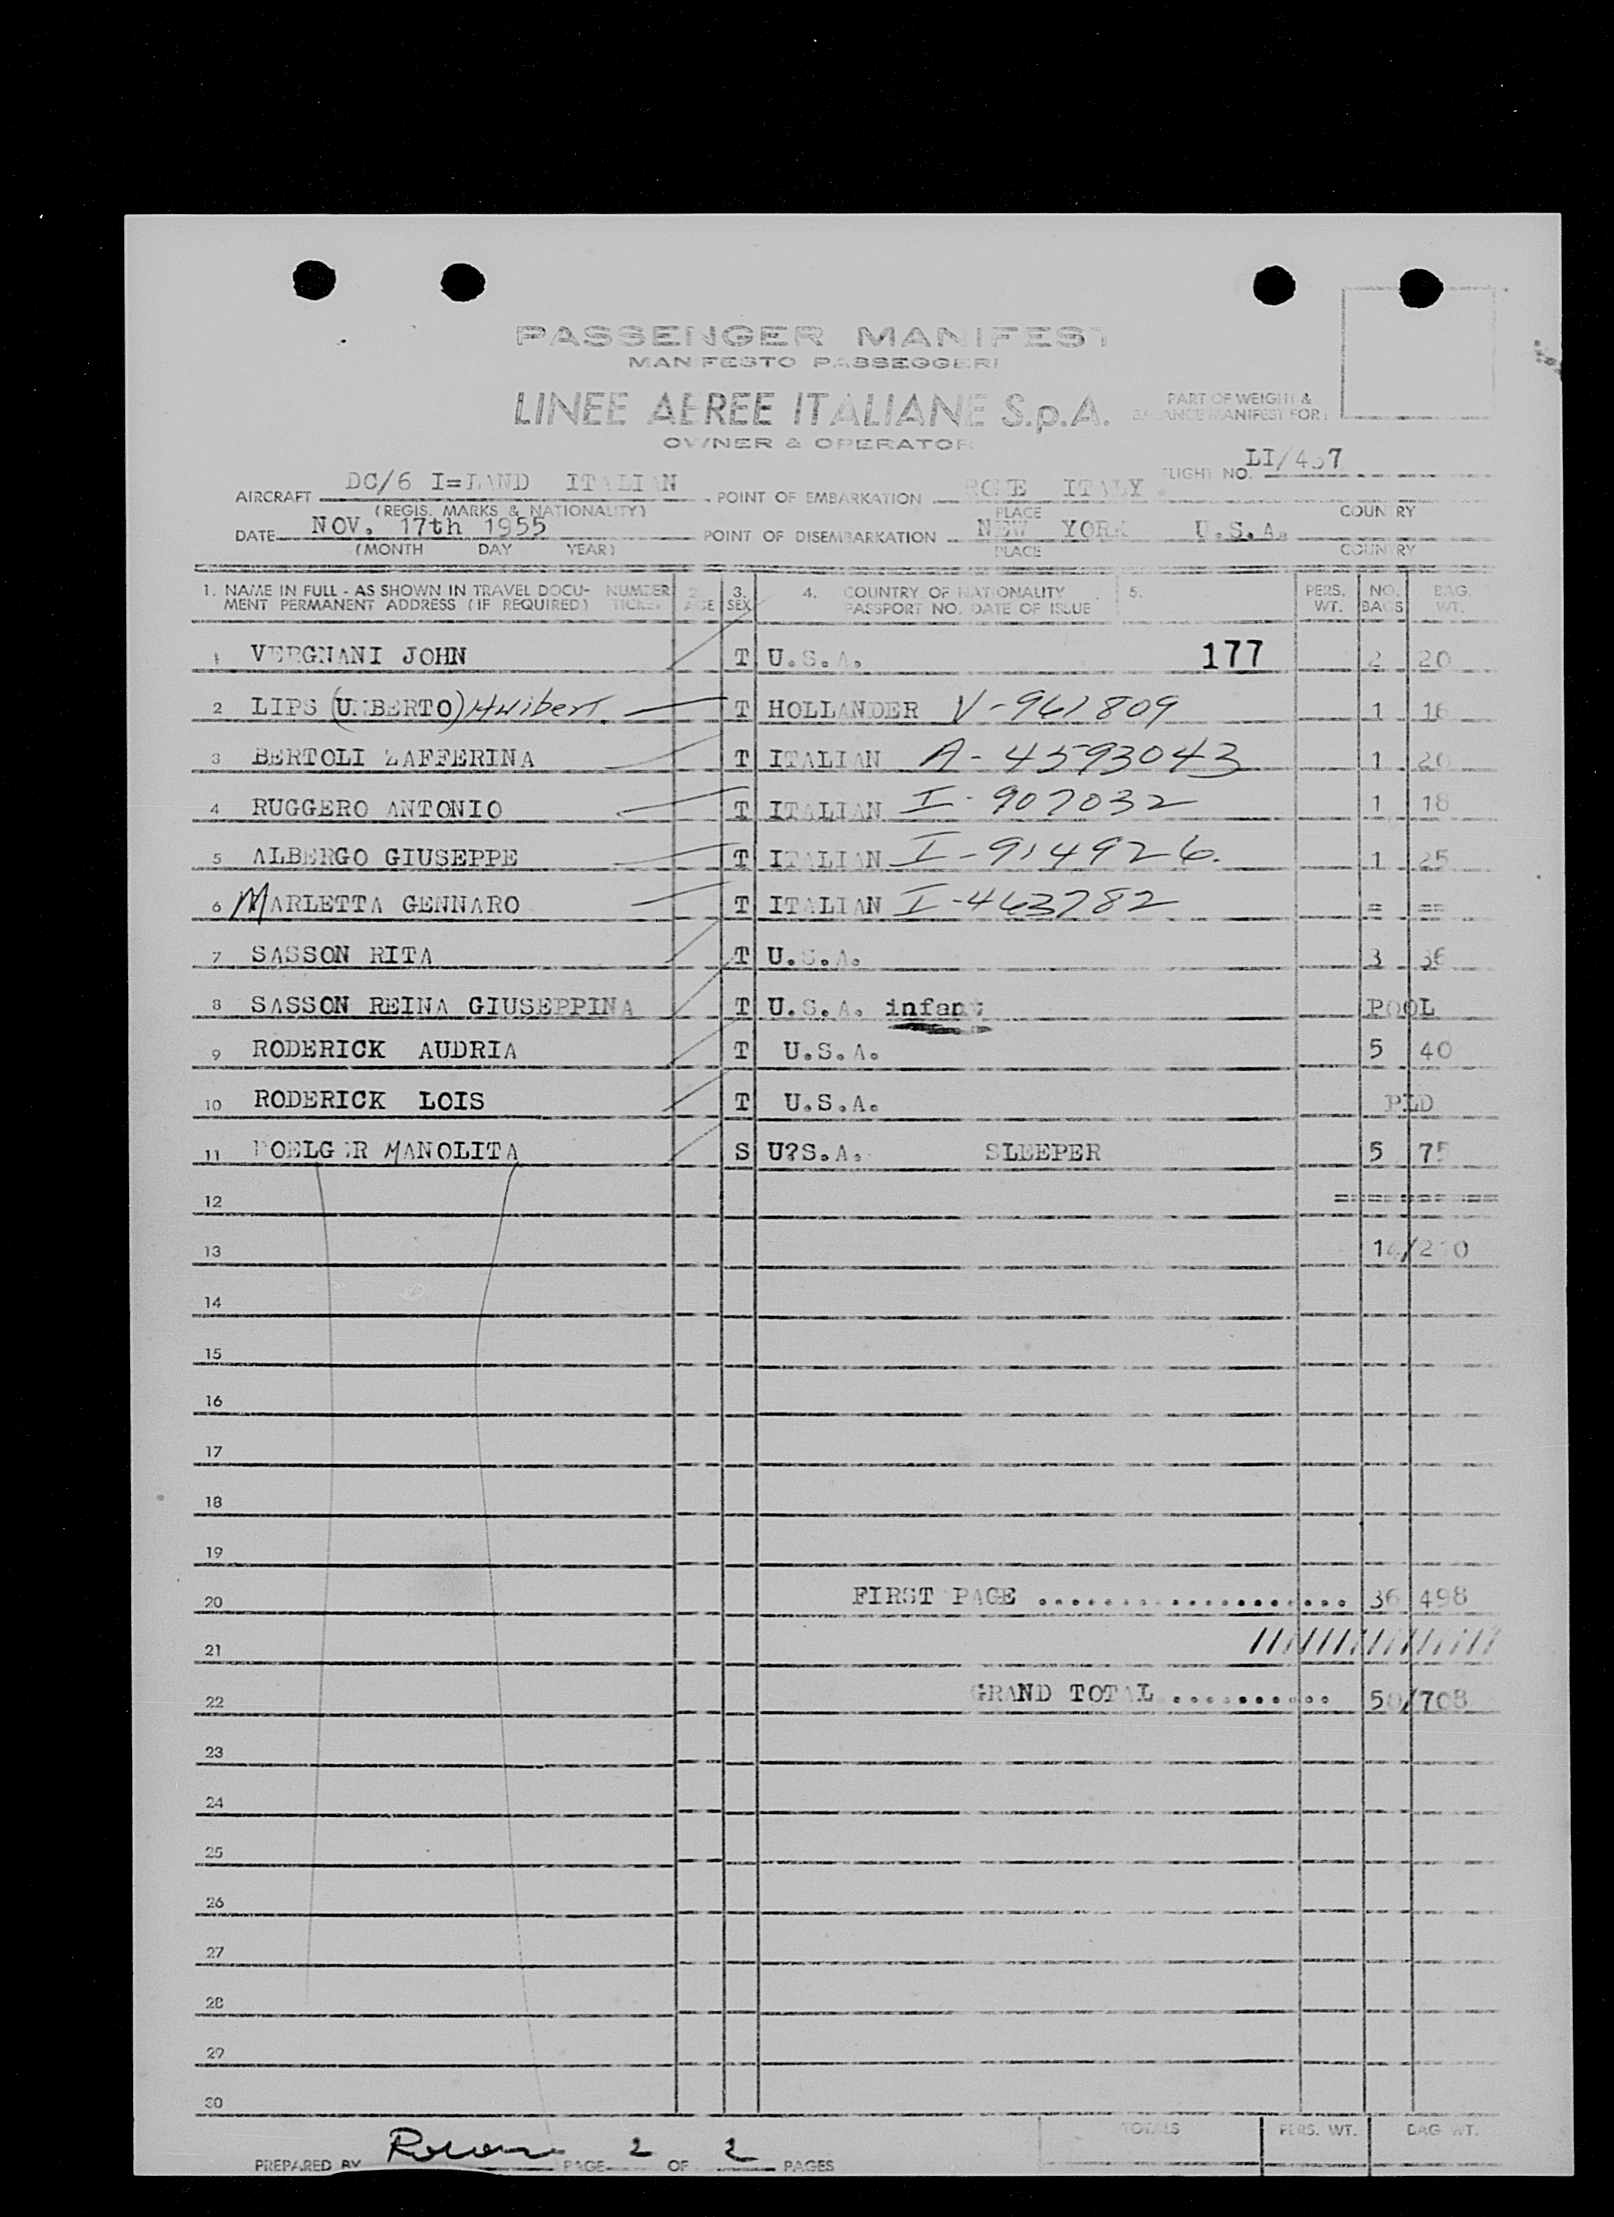 PASSENGER MANIFEST
MANIFESTO PASSEGGERI
LINEE AEREE ITALIANE S.p.A.
OWNER & OPERATOR
PART OF WEIGHT &
BALANCE MANIFEST FOR:
FLIGHT NO. LI/457
AIRCRAFT DC/6 I=LAND ITALIAN POINT OF EMBARKATION ROME ITALY
(REGIS. MARKS & NATIONALITY) PLACE COUNTRY
DATE NOV. 17th 1955 POINT OF DISEMBARKATION NEW YORK U.S.A.
(MONTH DAY YEAR) PLACE COUNTRY
1. NAME IN FULL - AS SHOWN IN TRAVEL DOCU- NUMBER 2. 3. 4. COUNTRY OF NATIONALITY 5. PERS. NO. BAG.
MENT PERMANENT ADDRESS (IF REQUIRED) TICKET AGE SEX PASSPORT NO. DATE OF ISSUE WT. BAGS WT.
1 VERGNANI JOHN T U.S.A. 177 2 20
2 LIPS (UMBERTO) Huibert. T HOLLANDER V-961809 1 16
3 BERTOLI ZAFFERINA T ITALIAN A-4593043 1 20
4 RUGGERO ANTONIO T ITALIAN I-907032 1 18
5 ALBERGO GIUSEPPE T ITALIAN I-914926. 1 25
6 MARLETTA GENNARO T ITALIAN I-463782 = ==
7 SASSON RITA T U.S.A. 3 36
8 SASSON REINA GIUSEPPINA T U.S.A. infant POOL
9 RODERICK AUDRIA T U.S.A. 5 40
10 RODERICK LOIS T U.S.A. PLD
11 MANOLITA S U?S.A. SLEEPER 5 75
12 ==========
13 14/210
14
15
16
17
18
19
20 FIRST PAGE ................... 36 498
21 ////////////////
22 GRAND TOTAL .......... 50/708
23
24
25
26
27
28
29
30
TOTALS PERS. WT. BAG WT.
PREPARED BY PAGE 2 OF 2 PAGES